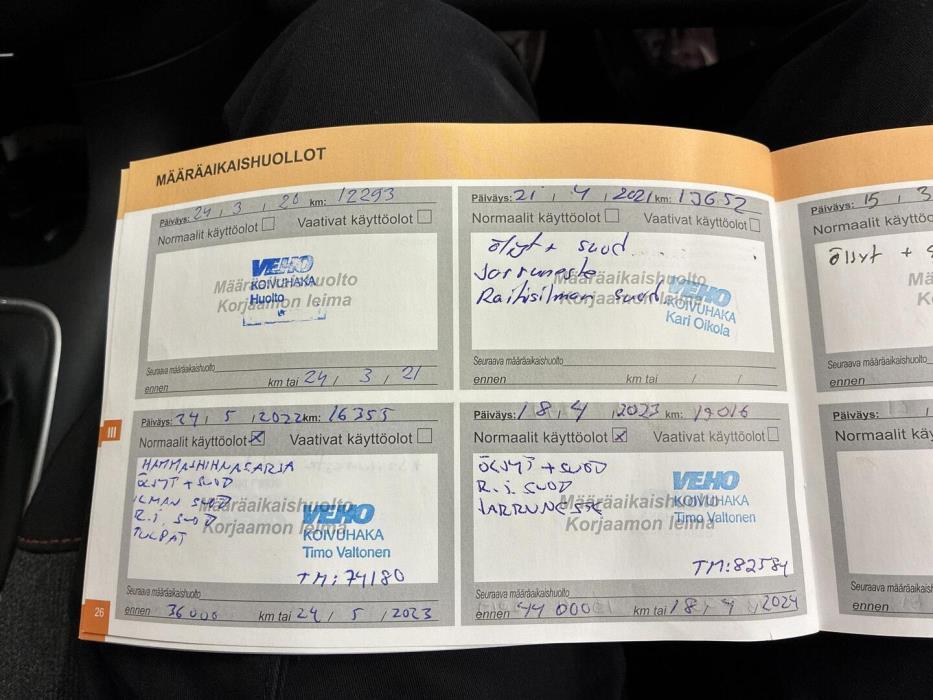 MÄÄRÄAIKAISHUOLLOT
Päiväys: 24 / 3 / 20 km: 12293
Normaalit käyttöolot Vaativat käyttöolot
VEHO
KOIVUHAKA
Huolto
Määräaikaishuolto
Korjaamon leima
Seuraava määräaikaishuolto
ennen km tai 24 / 3 / 21
Päiväys: 21 / 4 / 2021 km: 13652
Normaalit käyttöolot Vaativat käyttöolot
öljyt + suod.
Jarruneste
Raitisilman suod.
Määräaikaishuolto
Korjaamon leima
VEHO
KOIVUHAKA
Kari Oikola
Seuraava määräaikaishuolto
ennen km tai / /
Päiväys: 15 / 3
Normaalit käyttöolo
öljyt +
Mä
Ko
Seuraava määräaikaishuolto
ennen
III
Päiväys: 24 / 5 / 2022 km: 16353
Normaalit käyttöolot Vaativat käyttöolot
HAMMASHIHNASARJA
ÖLJYT + SUOD
ILMAN SUOD
R.i. SUOD
TULPAT
Määräaikaishuolto
Korjaamon leima
VEHO
KOIVUHAKA
Timo Valtonen
TM: 74180
Seuraava määräaikaishuolto
ennen 36000 km tai 24 / 5 / 2023
Päiväys: 18 / 4 / 2023 km: 19016
Normaalit käyttöolot Vaativat käyttöolot
ÖLJYT + SUOD
R.i. SUOD
JARRUNESTE
Määräaikaishuolto
Korjaamon leima
VEHO
KOIVUHAKA
Timo Valtonen
TM: 82584
Seuraava määräaikaishuolto
ennen 44 000 km tai 18 / 4 / 2024
Päiväys:
Normaalit käy
Mä
Ko
Seuraava määräaikaishuolto
ennen
26